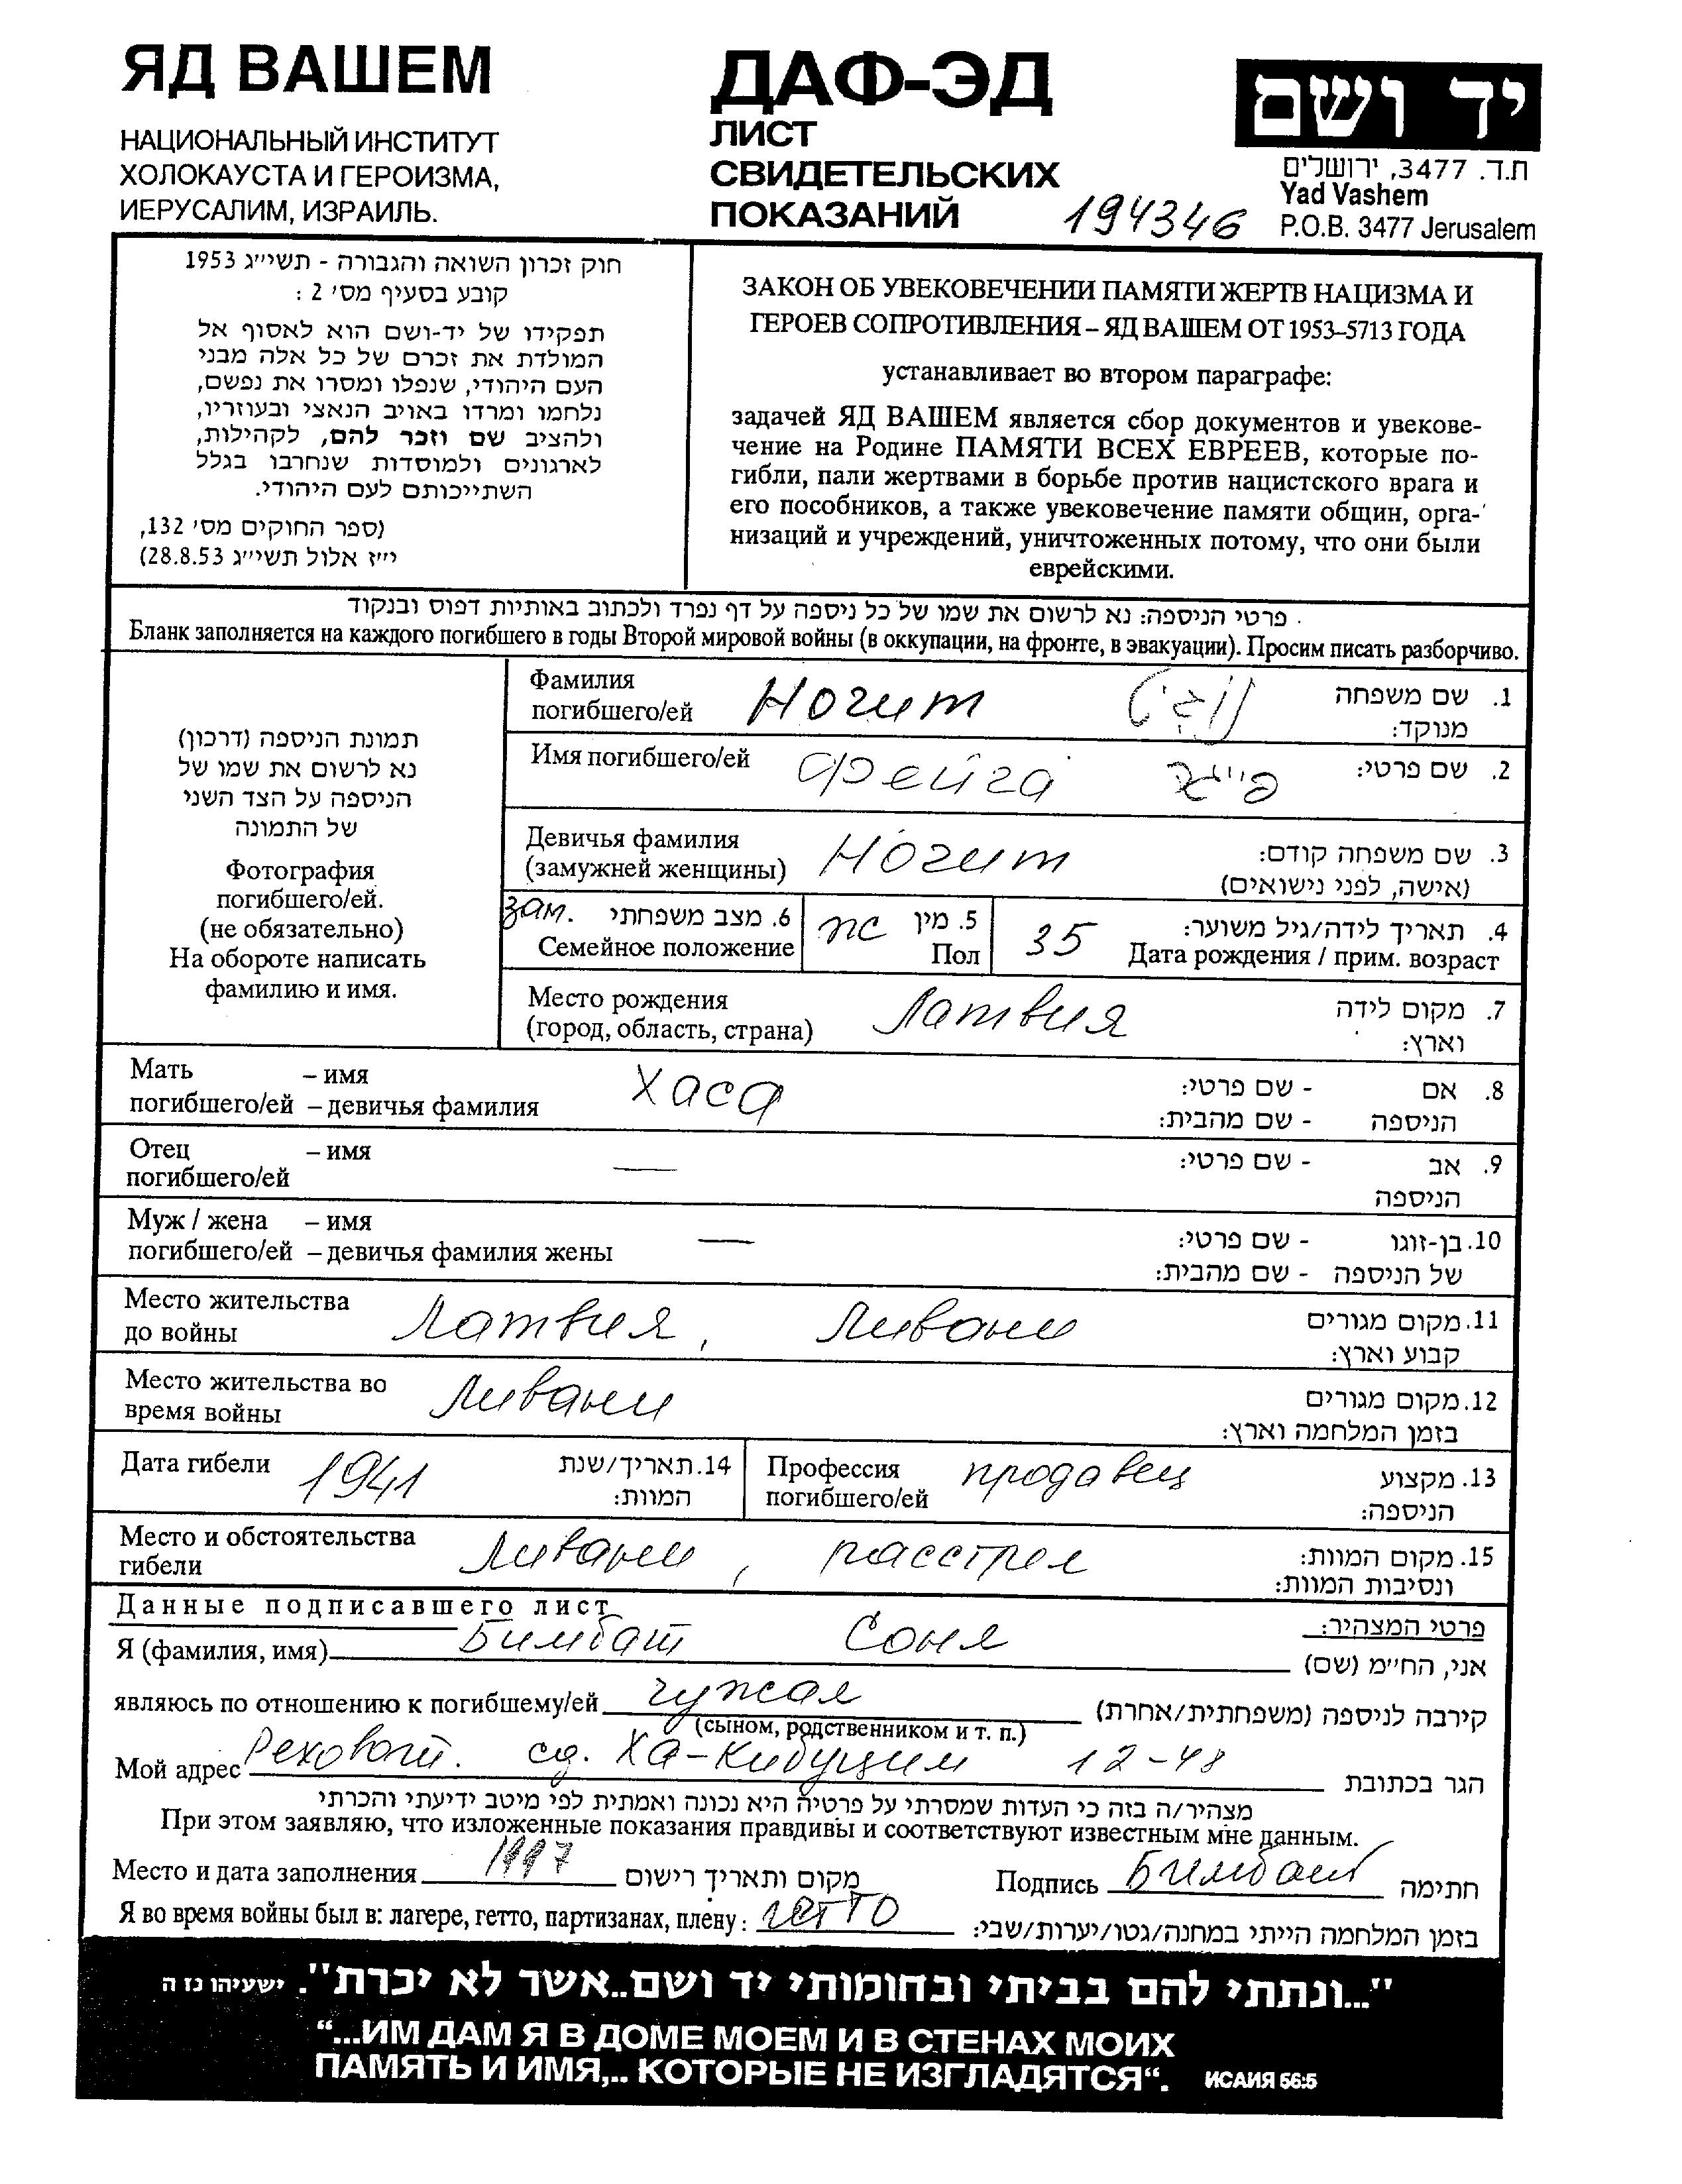 ЯД ВАШЕМ
НАЦИОНАЛЬНЫЙ ИНСТИТУТ
ХОЛОКАУСТА И ГЕРОИЗМА,
ИЕРУСАЛИМ, ИЗРАИЛЬ.
ДАФ-ЭД
ЛИСТ
СВИДЕТЕЛЬСКИХ
ПОКАЗАНИЙ
194346
יד ושם
ת.ד. 3477, ירושלים
Yad Vashem
P.O.B. 3477 Jerusalem
חוק זכרון השואה והגבורה - תשי״ג 1953
קובע בסעיף מס׳ 2 :
תפקידו של יד-ושם הוא לאסוף אל
המולדת את זכרם של כל אלה מבני
העם היהודי, שנפלו ומסרו את נפשם,
נלחמו ומרדו באויב הנאצי ובעוזריו,
ולהציב שם וזכר להם, לקהילות,
לארגונים ולמוסדות שנחרבו בגלל
השתייכותם לעם היהודי.
(ספר החוקים מס׳ 132,
י״ז אלול תשי״ג 28.8.53)
ЗАКОН ОБ УВЕКОВЕЧЕНИИ ПАМЯТИ ЖЕРТВ НАЦИЗМА И
ГЕРОЕВ СОПРОТИВЛЕНИЯ – ЯД ВАШЕМ ОТ 1953–5713 ГОДА
устанавливает во втором параграфе:
задачей ЯД ВАШЕМ является сбор документов и увекове-
чение на Родине ПАМЯТИ ВСЕХ ЕВРЕЕВ, которые по-
гибли, пали жертвами в борьбе против нацистского врага и
его пособников, а также увековечение памяти общин, орга-
низаций и учреждений, уничтоженных потому, что они были
еврейскими.
פרטי הניספה: נא לרשום את שמו של כל ניספה על דף נפרד ולכתוב באותיות דפוס ובנקוד
Бланк заполняется на каждого погибшего в годы Второй мировой войны (в оккупации, на фронте, в эвакуации). Просим писать разборчиво.
תמונת הניספה (דרכון)
נא לרשום את שמו של
הניספה על הצד השני
של התמונה
Фотография
погибшего/ей.
(не обязательно)
На обороте написать
фамилию и имя.
Фамилия
погибшего/ей
Ногит
1. שם משפחה
מנוקד:
Имя погибшего/ей
Фейга
פייגה
2. שם פרטי:
Девичья фамилия
(замужней женщины)
Ногит
3. שם משפחה קודם:
(אישה, לפני נישואים)
зам.
6. מצב משפחתי
Семейное положение
ж
5. מין
Пол
35
4. תאריך לידה/גיל משוער:
Дата рождения / прим. возраст
Место рождения
(город, область, страна)
Латвия
7. מקום לידה
וארץ:
Мать – имя
погибшего/ей – девичья фамилия
Хаса
8. אם - שם פרטי:
הניספה - שם מהבית:
Отец – имя
погибшего/ей
—
9. אב - שם פרטי:
הניספה
Муж / жена – имя
погибшего/ей – девичья фамилия жены
—
10. בן-זוגו - שם פרטי:
של הניספה - שם מהבית:
Место жительства
до войны
Латвия, Ливани
11. מקום מגורים
קבוע וארץ:
Место жительства во
время войны
Ливани
12. מקום מגורים
בזמן המלחמה וארץ:
Дата гибели
1941
14. תאריך/שנת
המוות:
Профессия
погибшего/ей
продавец
13. מקצוע
הניספה:
Место и обстоятельства
гибели
Ливани, расстрел
15. מקום המוות:
ונסיבות המוות:
Данные подписавшего лист
פרטי המצהיר:
Я (фамилия, имя) Бимбат Соня
אני, הח״מ (שם)
являюсь по отношению к погибшему/ей чужая
קירבה לניספה (משפחתית/אחרת)
(сыном, родственником и т. п.)
Мой адрес Реховот. сд. Ха-Кибуцим 12-48
הגר בכתובת
מצהיר/ה בזה כי העדות שמסרתי על פרטיה היא נכונה ואמתית לפי מיטב ידיעתי והכרתי
При этом заявляю, что изложенные показания правдивы и соответствуют известным мне данным.
Место и дата заполнения 1997 מקום ותאריך רישום
Подпись Бимбат חתימה
Я во время войны был в: лагере, гетто, партизанах, плену: гетто
בזמן המלחמה הייתי במחנה/גטו/יערות/שבי:
"...ונתתי להם בביתי ובחומותי יד ושם..אשר לא יכרת". ישעיהו נז ה
“...ИМ ДАМ Я В ДОМЕ МОЕМ И В СТЕНАХ МОИХ
ПАМЯТЬ И ИМЯ,.. КОТОРЫЕ НЕ ИЗГЛАДЯТСЯ“. ИСАИЯ 56:5